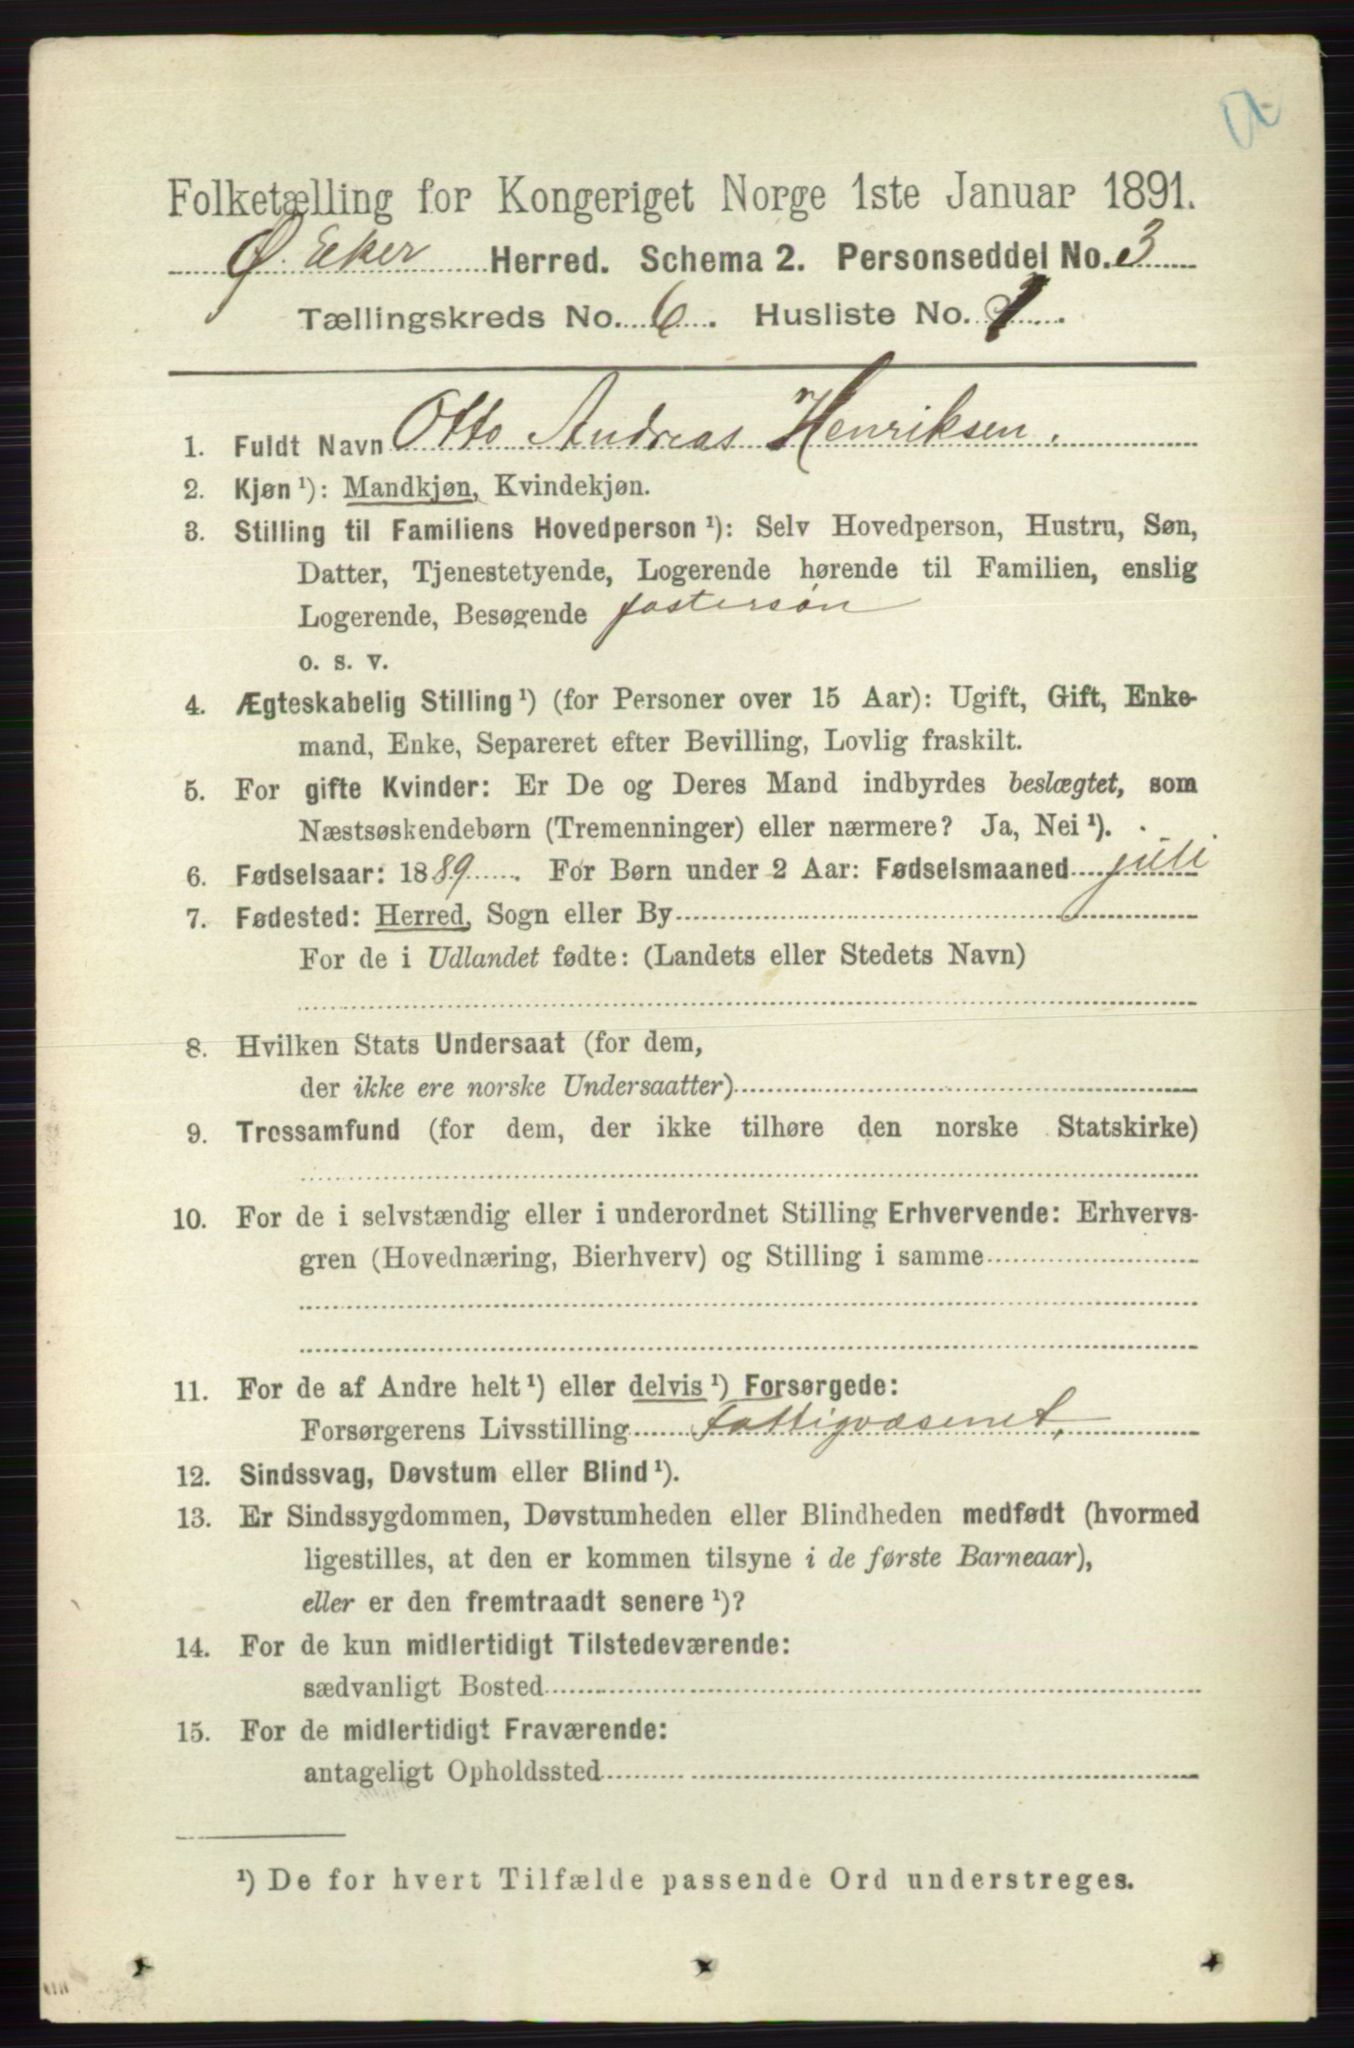 Folketælling for Kongeriget Norge 1ste Januar 1891.
Ø. Eker Herred. Schema 2. Personseddel No. 3
Tællingskreds No. 6. Husliste No. 1.
1. Fuldt Navn Otto Andreas Henriksen.
2. Kjøn ¹): Mandkjøn, Kvindekjøn.
3. Stilling til Familiens Hovedperson ¹): Selv Hovedperson, Hustru, Søn,
Datter, Tjenestetyende, Logerende hørende til Familien, enslig
Logerende, Besøgende fostersøn
o. s. v.
4. Ægteskabelig Stilling ¹) (for Personer over 15 Aar): Ugift, Gift, Enke-
mand, Enke, Separeret efter Bevilling, Lovlig fraskilt.
5. For gifte Kvinder: Er De og Deres Mand indbyrdes beslægtet, som
Næstsøskendebørn (Tremenninger) eller nærmere? Ja, Nei ¹).
6. Fødselsaar: 1889. For Børn under 2 Aar: Fødselsmaaned juli
7. Fødested: Herred, Sogn eller By
For de i Udlandet fødte: (Landets eller Stedets Navn)
8. Hvilken Stats Undersaat (for dem,
der ikke ere norske Undersaatter)
9. Trossamfund (for dem, der ikke tilhøre den norske Statskirke)
10. For de i selvstændig eller i underordnet Stilling Erhvervende: Erhvervs-
gren (Hovednæring, Bierhverv) og Stilling i samme
11. For de af Andre helt ¹) eller delvis ¹) Forsørgede:
Forsørgerens Livsstilling Fattigvæsenet,
12. Sindssvag, Døvstum eller Blind ¹).
13. Er Sindssygdommen, Døvstumheden eller Blindheden medfødt (hvormed
ligestilles, at den er kommen tilsyne i de første Barneaar),
eller er den fremtraadt senere ¹)?
14. For de kun midlertidigt Tilstedeværende:
sædvanligt Bosted
15. For de midlertidigt Fraværende:
antageligt Opholdssted
¹) De for hvert Tilfælde passende Ord understreges.